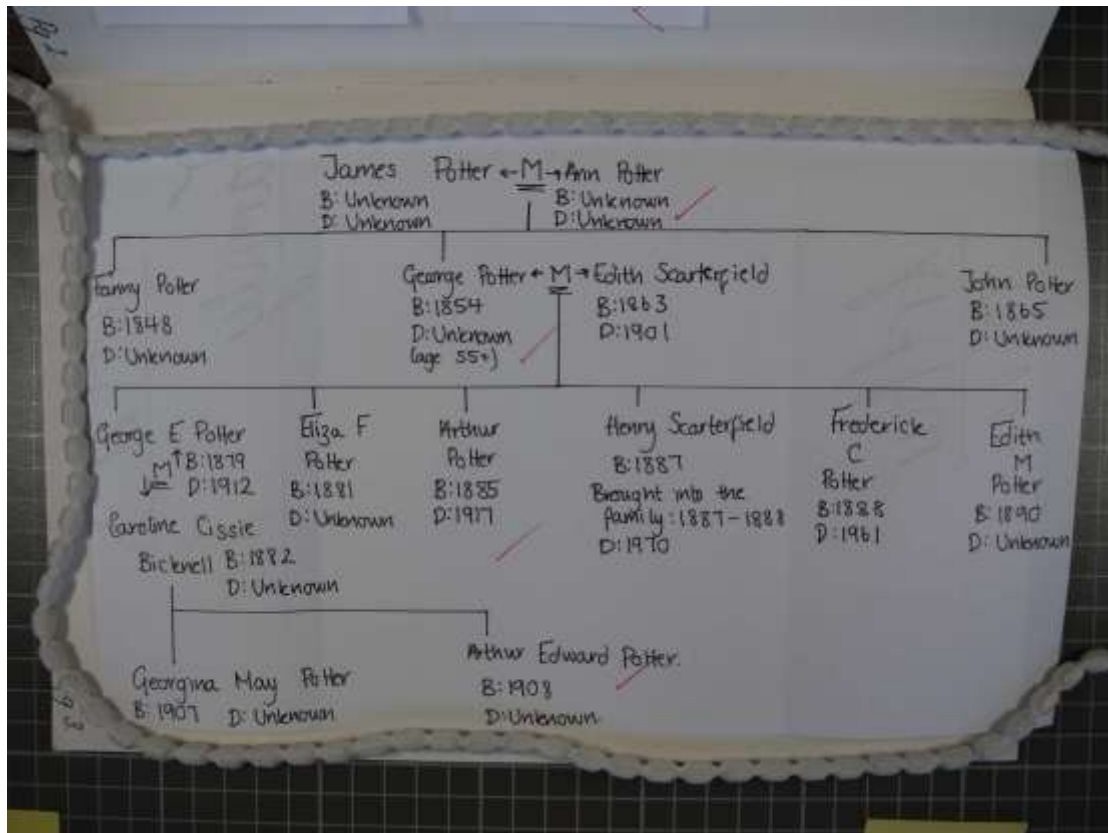 Pg 2
James Potter ←M→ Ann Potter
B: Unknown B: Unknown
D: Unknown D: Unknown
Fanny Potter
B: 1848
D: Unknown
George Potter ← M → Edith Scarterfield
B: 1854 B: 1863
D: Unknown D: 1901
(age 55+)
John Potter
B: 1865
D: Unknown
George E Potter
M↑ B: 1879
D: 1912
Caroline Cissie
Bicknell B: 1882
D: Unknown
Eliza F
Potter
B: 1881
D: Unknown
Arthur
Potter
B: 1885
D: 1917
Henry Scarterfield
B: 1887
Brought into the
family: 1887-1888
D: 1970
Frederick
C
Potter
B: 1888
D: 1961
Edith
M
Potter
B: 1890
D: Unknown
Georgina May Potter
B: 1907 D: Unknown
Arthur Edward Potter.
B: 1908
D: Unknown